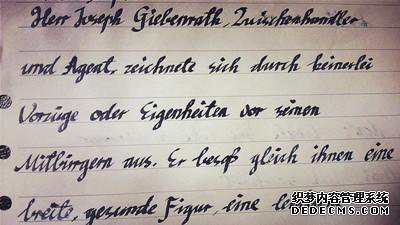 Herr Joseph Giebenrath, Zwischenhändler
und Agent, zeichnete sich durch keinerlei
Vorzüge oder Eigenheiten vor seinen
Mitbürgern aus. Er besaß gleich ihnen eine
breite, gesunde Figur, eine
织梦内容管理系统
DEDECMS.COM